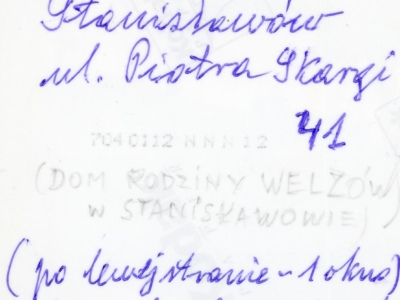 Stanisławów
ul. Piotra Skargi
41
7040112 N N N 12
(DOM RODZINY WELZÓW
w STANISŁAWOWIE)
(po lewej stronie - 1 okno)